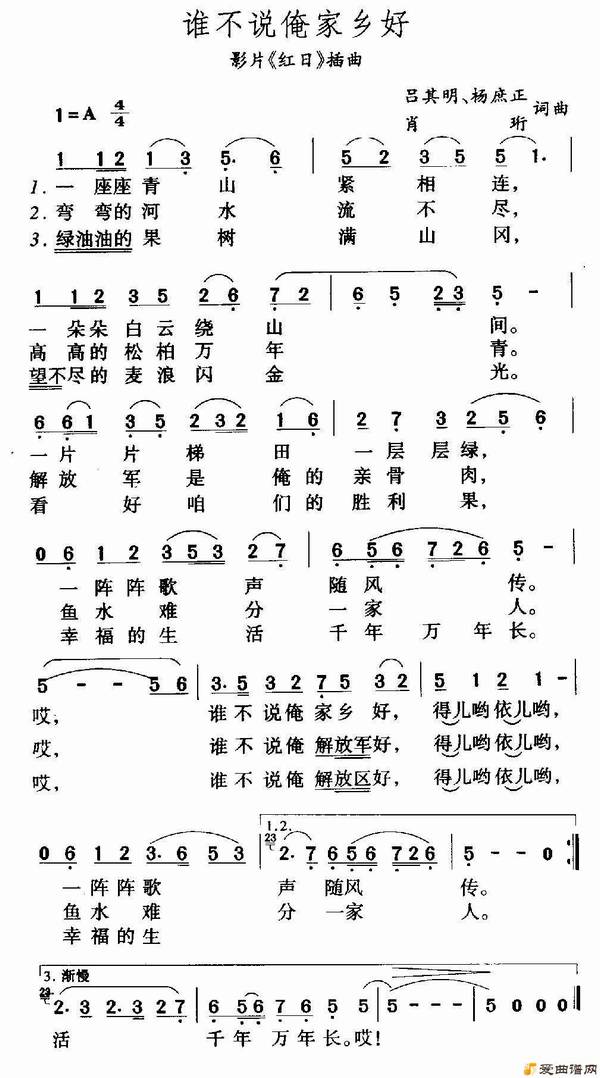 谁不说俺家乡好
影片《红日》插曲
吕其明、杨庶正
肖珩 词曲
1=A 4/4
1 12 13 5. 6 | 52 35 5 1. |
1.一座座青山紧相连,
2.弯弯的河水流不尽,
3.绿油油的果树满山冈,
1 12 35 26 72 | 6 5 23 5 - |
一朵朵白云绕山间。
高高的松柏万年青。
望不尽的麦浪闪金光。
6 661 35 232 16 | 2 7 3 256 |
一片片梯田一层层绿,
解放军是俺的亲骨肉,
看好咱们的胜利果,
06 12 353 27 | 6 56 726 5 - |
一阵阵歌声随风传。
鱼水难分一家人。
幸福的生活千年万年长。
5 - - 56 | 3.5 32 75 32 | 51 21 - |
哎,谁不说俺家乡好,得儿哟依儿哟,
哎,谁不说俺解放军好,得儿哟依儿哟,
哎,谁不说俺解放区好,得儿哟依儿哟,
1.2.
06 12 3.6 53 | 23 2.7 656 726 | 5 - - 0 :|
一阵阵歌声随风传。
鱼水难分一家人。
幸福的生
3.渐慢
23 2.3 2.3 27 | 6 56 7 2 | 1 - - 0 ‖
活千年万年长。哎!
爱曲谱网